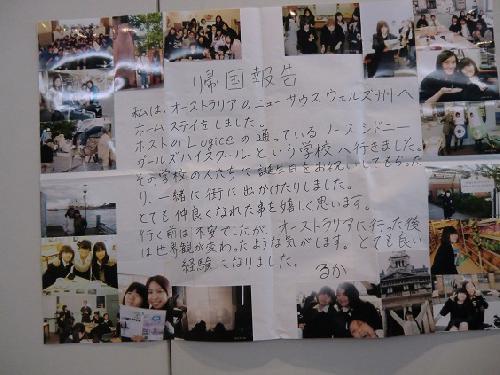 帰国報告
私は、オーストラリアのニューサウスウェルズ州へ
ホームステイをしました。
ホストのLugiceの通っているノースシドニー
ガールズハイスクールという学校へ行きました。
その学校の人たちに誕生日をお祝いしてもらった
り、一緒に街に出かけたりしました。
とても仲良くなれた事を嬉しく思います。
行く前は不安でしたが、オーストラリアに行った後
は世界観が変わったような気がします。とても良い
経験になりました。 るか